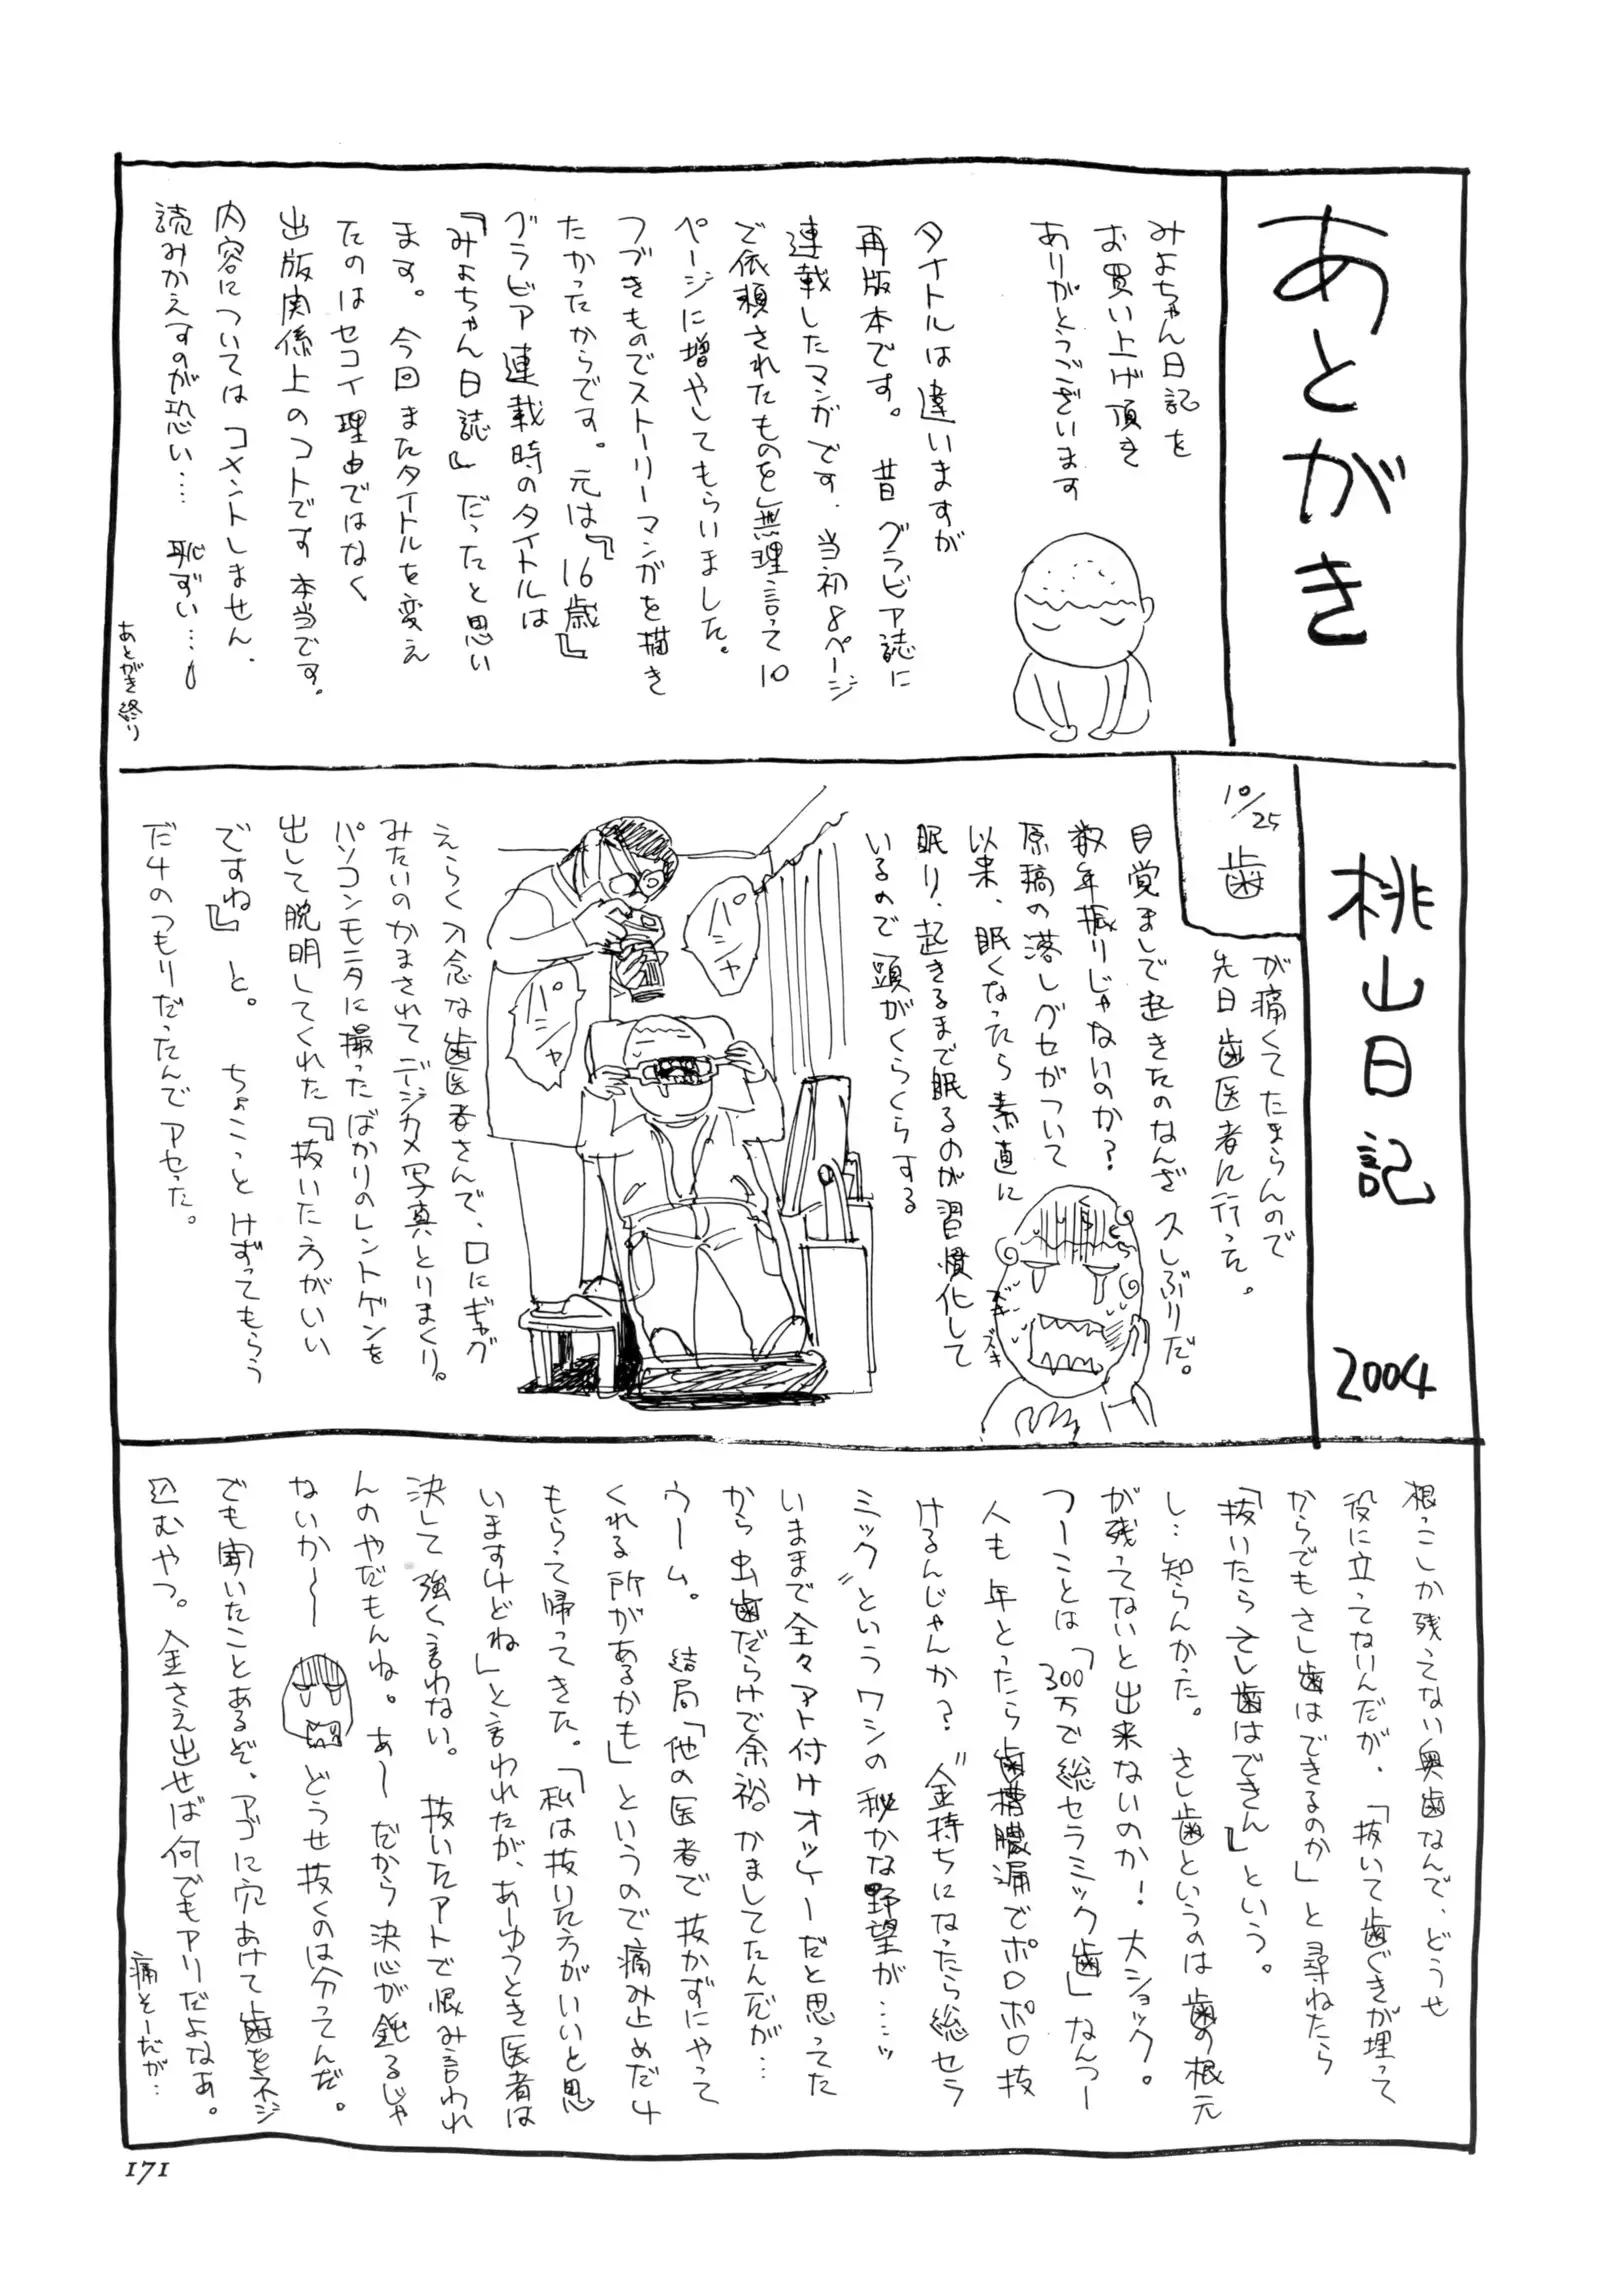 あとがき
みよちゃん日記を
お買い上げ頂き
ありがとうございます
タイトルは違いますが
再版本です。昔グラビア誌に
連載したマンガです。当初8ページ
で依頼されたものを無理言って10
ページに増やしてもらいました。
つづきものでストーリーマンガを描き
たかったからです。元は『16歳』
グラビア連載時のタイトルは
『みよちゃん日誌』だったと思い
ます。今回またタイトルを変え
たのはセコイ理由ではなく
出版関係上のコトです本当です。
内容についてはコメントしません.
読みかえすのが恐い…. 恥ずい…
あとがき終り
桃山日記 2004
10/25 歯
が痛くてたまらんので
先日歯医者に行った。
目覚ましで起きたのなんざ久しぶりだ。
数年振りじゃないのか?
原稿の落しグセがついて
以来、眠くなったら素直に
眠り、起きるまで眠るのが習慣化して
いるので頭がくらくらする
ズキ
ズキ
パシャ
パシャ
えらく入念な歯医者さんで、口にギャグ
みたいのかまされてデジカメ写真とりまくり。
パソコンモニタに撮ったばかりのレントゲンを
出して説明してくれた『抜いた方がいい
ですね』と。 ちょこっとけずってもらう
だけのつもりだったんでアセった。
根っこしか残ってない奥歯なんで、どうせ
役に立ってないんだが、「抜いて歯ぐきが埋って
からでもさし歯はできるのか」と尋ねたら
「抜いたらさし歯はできん」という。
し…知らんかった。さし歯というのは歯の根元
が残ってないと出来ないのか!大ショック。
つーことは「300万で総セラミック歯」なんつー
人も年とったら歯槽膿漏でポロポロ抜
けるんじゃんか?〝金持ちになったら総セラ
ミック〟というワシの秘かな野望が……ッ
いままで全々アト付けオッケーだと思ってた
から虫歯だらけで余裕かましてたんだが…
ウーム。 結局「他の医者で抜かずにやって
くれる所があるかも」というので痛み止めだけ
もらって帰ってきた。「私は抜いた方がいいと思
いますけどね」と言われたが、あーゆうとき医者は
決して強く言わない。抜いたアトで恨み言われ
んのやだもんね。あー だから決心が鈍るじゃ
ないか〜〜 どうせ抜くのは分ってんだ。
でも聞いたことあるぞ、アゴに穴あけて歯をネジ
込むやつ。金さえ出せば何でもアリだよなあ。
痛そーだが…
171